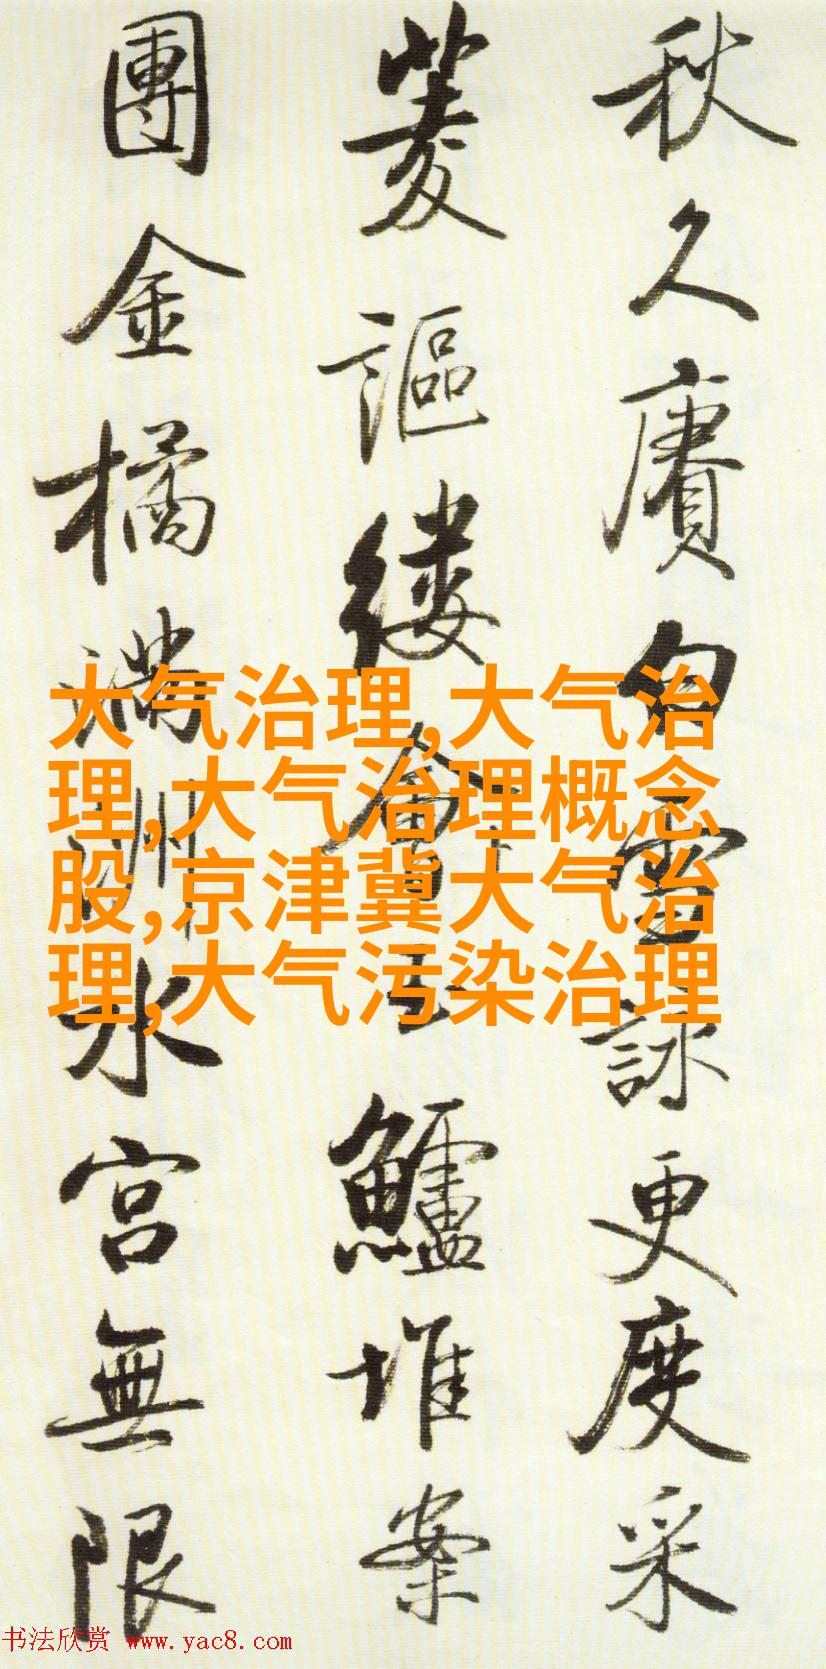 秋久賡白雪詠更度采
菱謳縷會玉鱸堆案
團金橘滿洲水宮無限
大气治理,大气治
理,大气治理概念
股,京津冀大气治
理,大气污染治理
书法欣赏 www.yac8.com